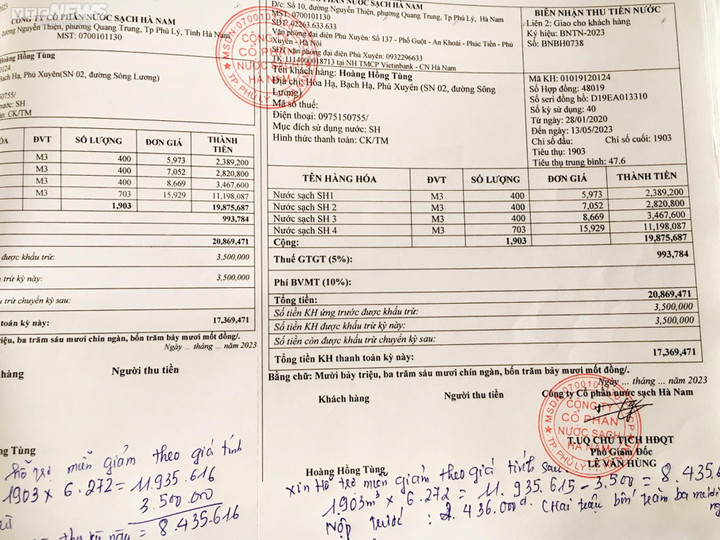 VTC NEWS
CÔNG TY CỔ PHẦN NƯỚC SẠCH HÀ NAM
đường Nguyễn Thiện, phường Quang Trung, Tp Phủ Lý, Tỉnh Hà Nam
MST: 0700101130
Hoàng Hồng Tùng
0124
Bạch Hạ, Phú Xuyên(SN 02, đường Sông Lương)
50755/
nước: SH
n: CK/TM
ĐVT SỐ LƯỢNG ĐƠN GIÁ THÀNH TIỀN
M3 400 5,973 2,389,200
M3 400 7,052 2,820,800
M3 400 8,669 3,467,600
M3 703 15,929 11,198,087
1,903 19,875,687
993,784
20,869,471
được khấu trừ: 3,500,000
trừ kỳ này: 3,500,000
trừ chuyển kỳ sau:
toán kỳ này: 17,369,471
ệu, ba trăm sáu mươi chín ngàn, bốn trăm bảy mươi mốt đồng/.
Ngày ... tháng ... năm 2023
hàng Người thu tiền
g Tùng
hỗ trợ miễn giảm theo giá tính
1903 x 6.272 = 11.935.616
3.500.000
8.435.616
CÔNG TY CỔ PHẦN NƯỚC SẠCH HÀ NAM
Đ/c: Số 10, đường Nguyễn Thiện, phường Quang Trung, Tp Phủ Lý, Hà Nam
MST: 0700101130
SĐT: 02263.633.633
Văn phòng đại diện Phú Xuyên: Số 137 - Phố Guột - An Khoái - Phúc Tiến - Phú Xuyên - Hà Nội
SĐT Văn phòng đại diện Phú Xuyên: 0932296633
TK 1114000018713 tại NH TMCP Vietinbank - CN Hà Nam
Tên khách hàng: Hoàng Hồng Tùng
Địa chỉ: Hòa Hạ, Bạch Hạ, Phú Xuyên (SN 02, đường Sông Lương)
Mã số thuế:
Điện thoại: 0975150755/
Mục đích sử dụng nước: SH
Hình thức thanh toán: CK/TM
BIÊN NHẬN THU TIỀN NƯỚC
Liên 2: Giao cho khách hàng
Ký hiệu: BNTN-2023
Số: BNBH0738
Mã KH: 01019120124
Số Hợp đồng: 48019
Số seri đồng hồ: D19EA013310
Số kỳ sử dụng: 40
Từ ngày: 28/01/2020
Đến ngày: 13/05/2023
Chỉ số đầu: Chỉ số cuối: 1903
Tiêu thụ: 1903
Tiêu thụ trung bình: 47.6
TÊN HÀNG HÓA ĐVT SỐ LƯỢNG ĐƠN GIÁ THÀNH TIỀN
Nước sạch SH1 M3 400 5,973 2,389,200
Nước sạch SH 2 M3 400 7,052 2,820,800
Nước sạch SH 3 M3 400 8,669 3,467,600
Nước sạch SH 4 M3 703 15,929 11,198,087
Cộng: 1,903 19,875,687
Thuế GTGT (5%): 993,784
Phí BVMT (10%):
Tổng tiền: 20,869,471
Số tiền KH ứng trước được khấu trừ: 3,500,000
Số tiền KH được khấu trừ kỳ này: 3,500,000
Số tiền còn được khấu trừ chuyển kỳ sau:
Tổng tiền KH thanh toán kỳ này: 17,369,471
Bằng chữ: Mười bảy triệu, ba trăm sáu mươi chín ngàn, bốn trăm bảy mươi mốt đồng/.
Ngày ... tháng ... năm 2023
Khách hàng Người thu tiền Công ty Cổ phần nước sạch Hà Nam
MSDN: 0700101130
CÔNG TY
CỔ PHẦN
NƯỚC SẠCH
HÀ NAM
TP PHỦ LÝ
T.UQ CHỦ TỊCH HĐQT
Phó Giám Đốc
LÊ VĂN HÙNG
Hoàng Hồng Tùng
xin hỗ trợ miễn giảm theo giá tính sau
1903m³ x 6.272 = 11.935.615 - 3.500 = 8.435.6
Nộp trước : 436.000đ. (Hai triệu bốn trăm ba